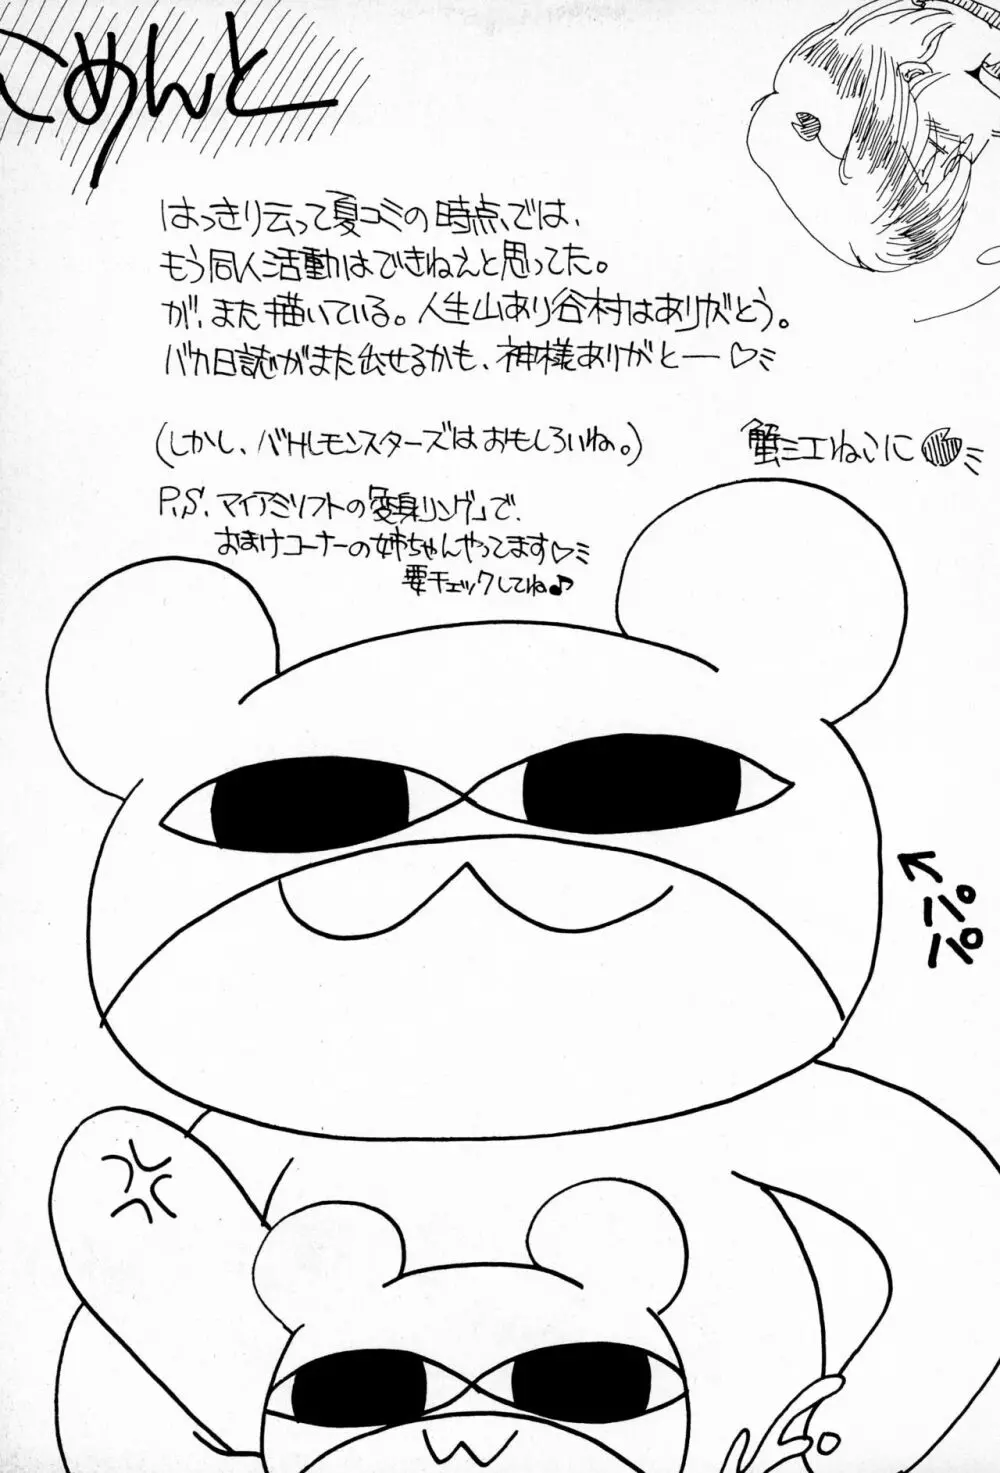 こめんと
はっきり云って夏コミの時点では、
もう同人活動はできねえと思ってた。
が、また描いている。人生山あり谷村はありがとう。
バカ日誌がまた出せるかも、神様ありがとー♡ミ
(しかし、バトルモンスターズはおもしろいね。)
蟹ミエねこに
P.S. マイアミソフトの「変身リング」で、
おまけコーナーの姉ちゃんやってます♡ミ
要チェックしてね♪
↖パパ